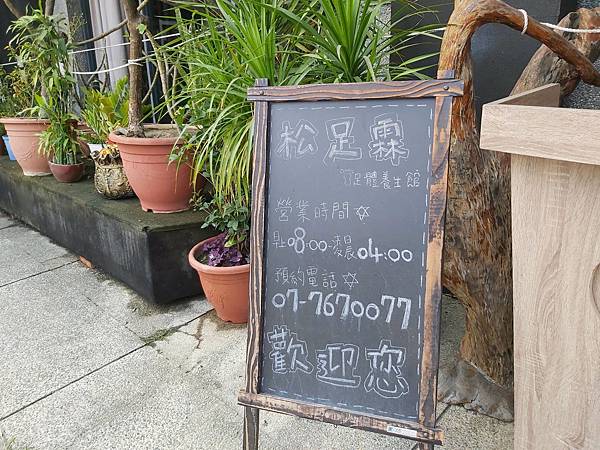 松足霖
足體養生館
營業時間
早08:00-凌晨04:00
預約電話
07-7670077
歡迎您